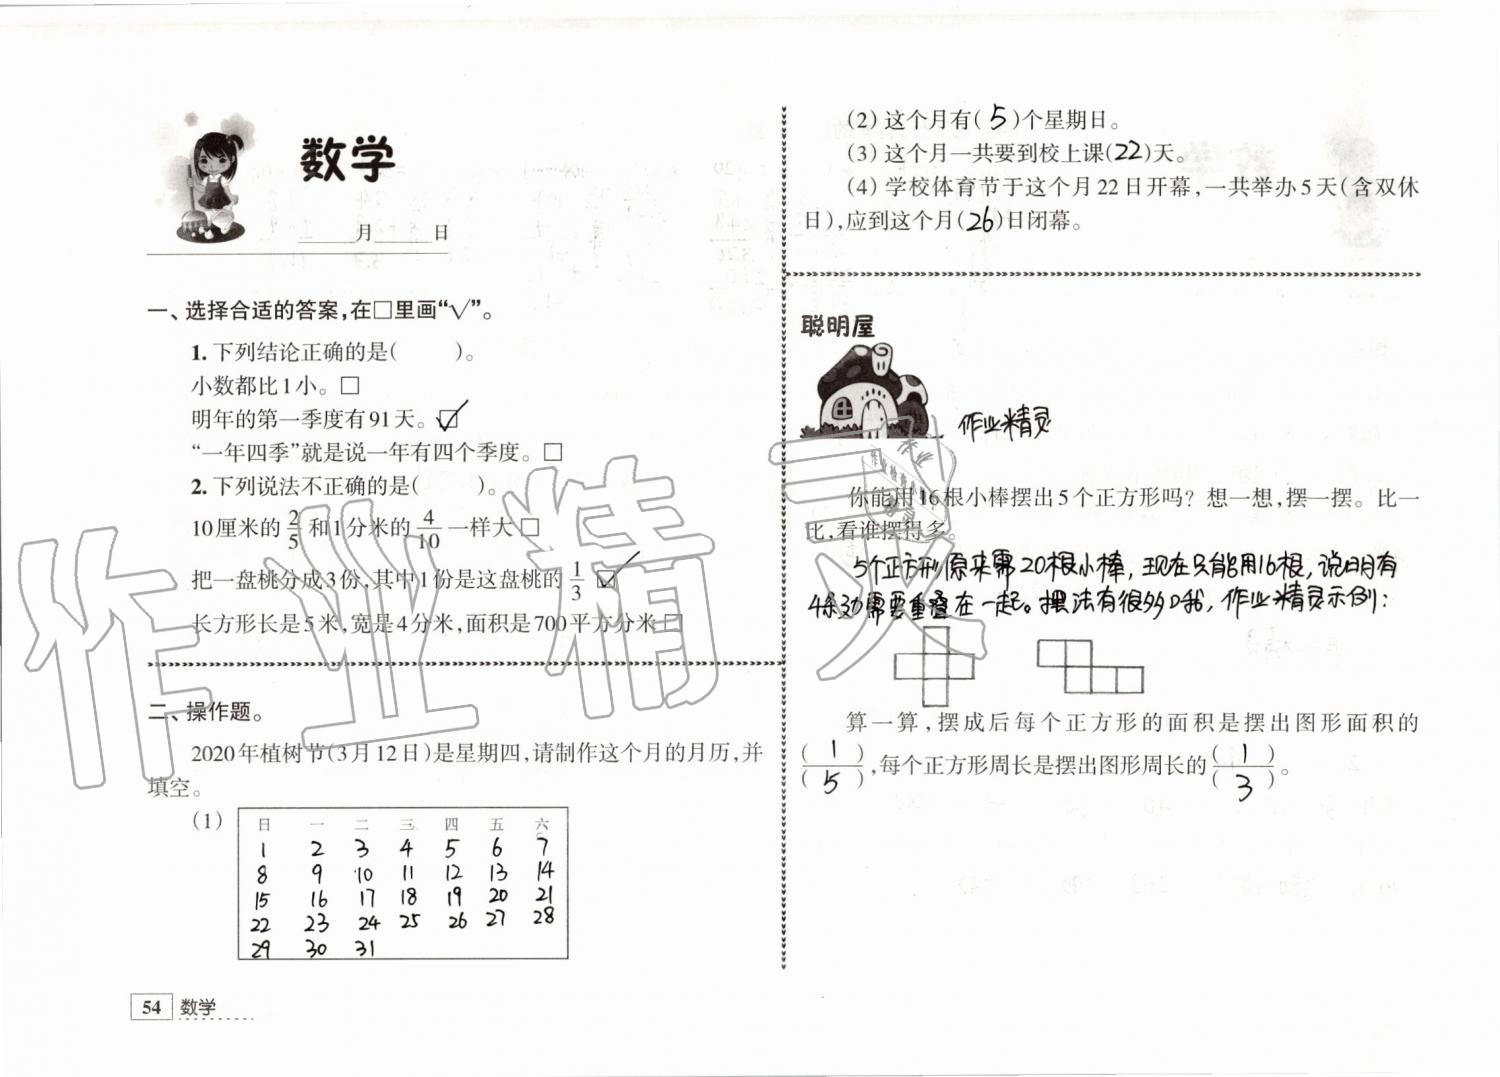 数学
______月______日
一、选择合适的答案,在□里画“√”。
1. 下列结论正确的是(  )。
小数都比1小。□
明年的第一季度有91天。☑
“一年四季”就是说一年有四个季度。□
2. 下列说法不正确的是(  )。
10厘米的 2/5 和1分米的 4/10 一样大 □
把一盘桃分成3份,其中1份是这盘桃的 1/3 ☑
长方形长是5米,宽是4分米,面积是700平方分米 □
二、操作题。
2020年植树节(3月12日)是星期四,请制作这个月的月历,并
填空。
(1)
日 一 二 三 四 五 六
1 2 3 4 5 6 7
8 9 10 11 12 13 14
15 16 17 18 19 20 21
22 23 24 25 26 27 28
29 30 31
54 数学
(2) 这个月有(5)个星期日。
(3) 这个月一共要到校上课(22)天。
(4) 学校体育节于这个月22日开幕,一共举办5天(含双休
日),应到这个月(26)日闭幕。
聪明屋
作业精灵
你能用16根小棒摆出5个正方形吗?想一想,摆一摆。比一
比,看谁摆得多。
5个正方形原来需20根小棒,现在只能用16根,说明有
4条边需要重叠在一起。摆法有很多哦,作业精灵示例:
算一算,摆成后每个正方形的面积是摆出图形面积的
(1)/(5),每个正方形周长是摆出图形周长的(1)/(3)。
作业精灵